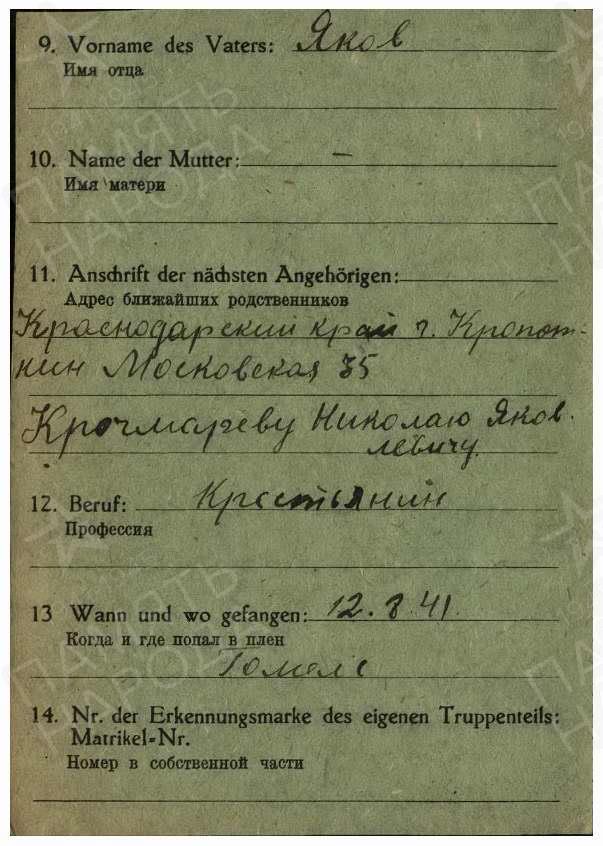 9. Vorname des Vaters: Яков
Имя отца
10. Name der Mutter: —
Имя матери
11. Anschrift der nächsten Angehörigen:
Адрес ближайших родственников
Краснодарский край г. Кропот-
кин Московская 35
Крочмареву Николаю Яков.
левичу
12. Beruf: Крестьянин
Профессия
13 Wann und wo gefangen: 12.8.41.
Когда и где попал в плен
Гомель
14. Nr. der Erkennungsmarke des eigenen Truppenteils:
Matrikel-Nr.
Номер в собственной части
ПАМЯТЬ
НАРОДА